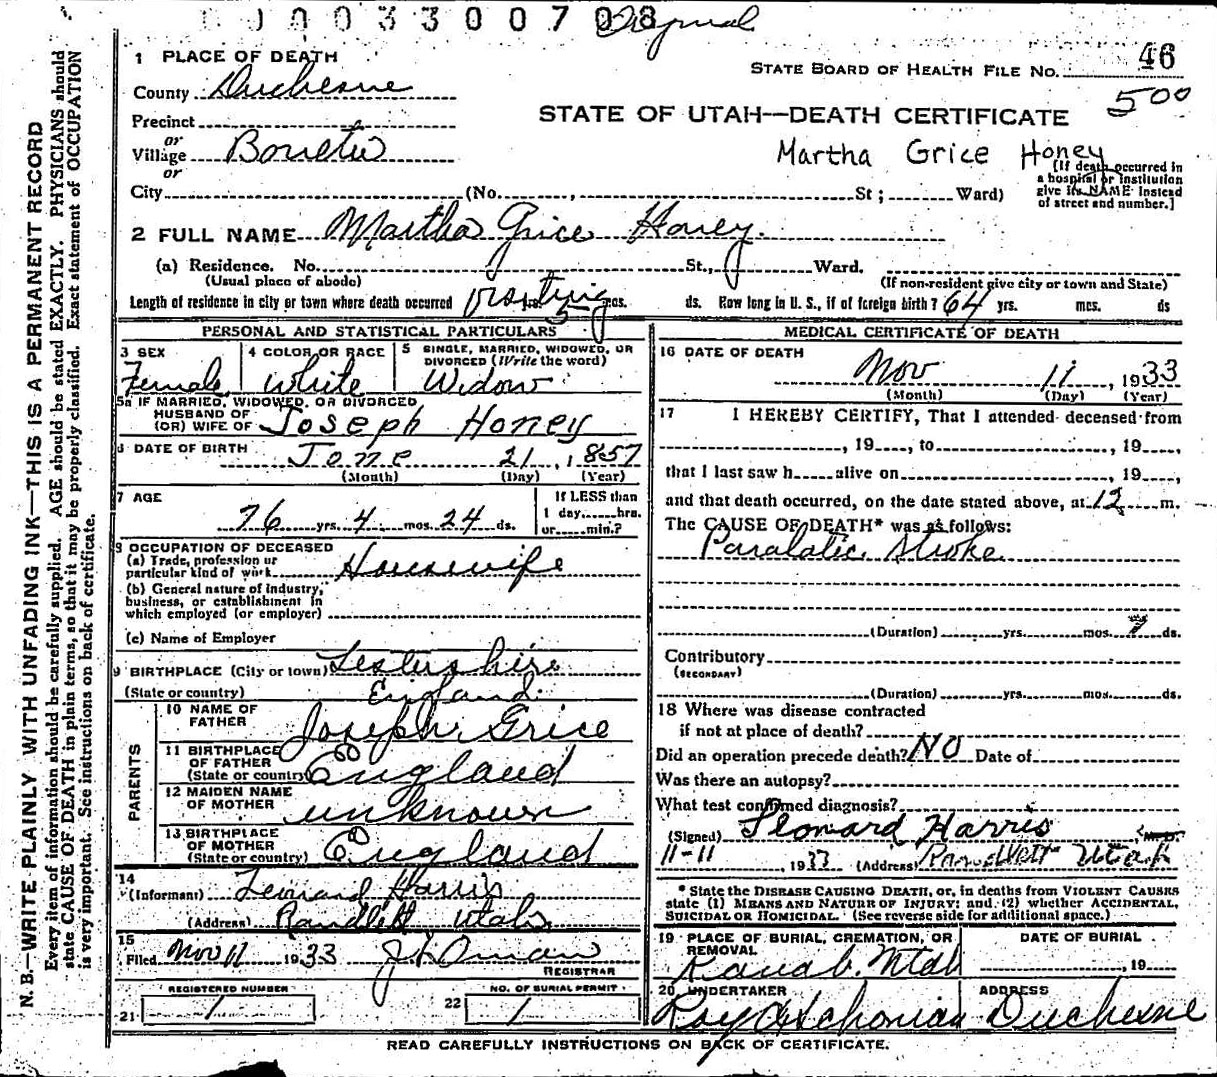 0003300708
State Board of Health File No. 46
500
1 PLACE OF DEATH
County Duchesne
STATE OF UTAH—DEATH CERTIFICATE
Precinct
or
Village
or
Martha Grice Honey
[If death occurred in a hospital or institution give its NAME instead of street and number.]
City (No. , St; Ward)
2 FULL NAME Martha Grice Honey.
(a) Residence. No. St., Ward.
(Usual place of abode) (If non-resident give city or town and State)
Length of residence in city or town where death occurred visiting mos. ds. How long in U. S., if of foreign birth? 64 yrs. mos. ds
PERSONAL AND STATISTICAL PARTICULARS
3 SEX Female
4 COLOR OR RACE White
5 SINGLE, MARRIED, WIDOWED, OR DIVORCED (Write the word) Widow
5a IF MARRIED, WIDOWED, OR DIVORCED
HUSBAND OF
(OR) WIFE OF Joseph Honey
6 DATE OF BIRTH June 21, 1857
(Month) (Day) (Year)
7 AGE 76 yrs. 4 mos. 24 ds.
If LESS than 1 day, hrs. or min.?
8 OCCUPATION OF DECEASED
(a) Trade, profession or particular kind of work Housewife
(b) General nature of industry, business, or establishment in which employed (or employer)
(c) Name of Employer
9 BIRTHPLACE (City or town) Lestershire
(State or country) England.
PARENTS
10 NAME OF FATHER Joseph Grice
11 BIRTHPLACE OF FATHER (State or country) England
12 MAIDEN NAME OF MOTHER unknown
13 BIRTHPLACE OF MOTHER (State or country) England
14 (Informant) Leonard Harris
(Address) Randlett Utah
15 Filed Nov 11 1933
REGISTRAR
REGISTERED NUMBER NO. OF BURIAL PERMIT
21 1 22 1
MEDICAL CERTIFICATE OF DEATH
16 DATE OF DEATH Nov 11, 1933
(Month) (Day) (Year)
17 I HEREBY CERTIFY, That I attended deceased from
, 19 , to , 19 ,
that I last saw h alive on , 19 ,
and that death occurred, on the date stated above, at 12 m.
The CAUSE OF DEATH* was as follows:
Paralatic Stroke
(Duration) yrs. mos. ds.
Contributory
(SECONDARY)
(Duration) yrs. mos. ds.
18 Where was disease contracted
if not at place of death?
Did an operation precede death? NO Date of
Was there an autopsy?
What test confirmed diagnosis?
(Signed) Leonard Harris
11-11, 1933 (Address) Randlett Utah
* State the DISEASE CAUSING DEATH, or, in deaths from VIOLENT CAUSES
state (1) MEANS AND NATURE OF INJURY; and (2) whether ACCIDENTAL,
SUICIDAL OR HOMICIDAL. (See reverse side for additional space.)
19 PLACE OF BURIAL, CREMATION, OR REMOVAL DATE OF BURIAL
Kanab. Utah , 19
20 UNDERTAKER ADDRESS
Roy Duchesne
READ CAREFULLY INSTRUCTIONS ON BACK OF CERTIFICATE.
N. B.—WRITE PLAINLY WITH UNFADING INK—THIS IS A PERMANENT RECORD
Every item of information should be carefully supplied. AGE should be stated EXACTLY. PHYSICIANS should
state CAUSE OF DEATH in plain terms, so that it may be properly classified. Exact statement of OCCUPATION
is very important. See instructions on back of certificate.